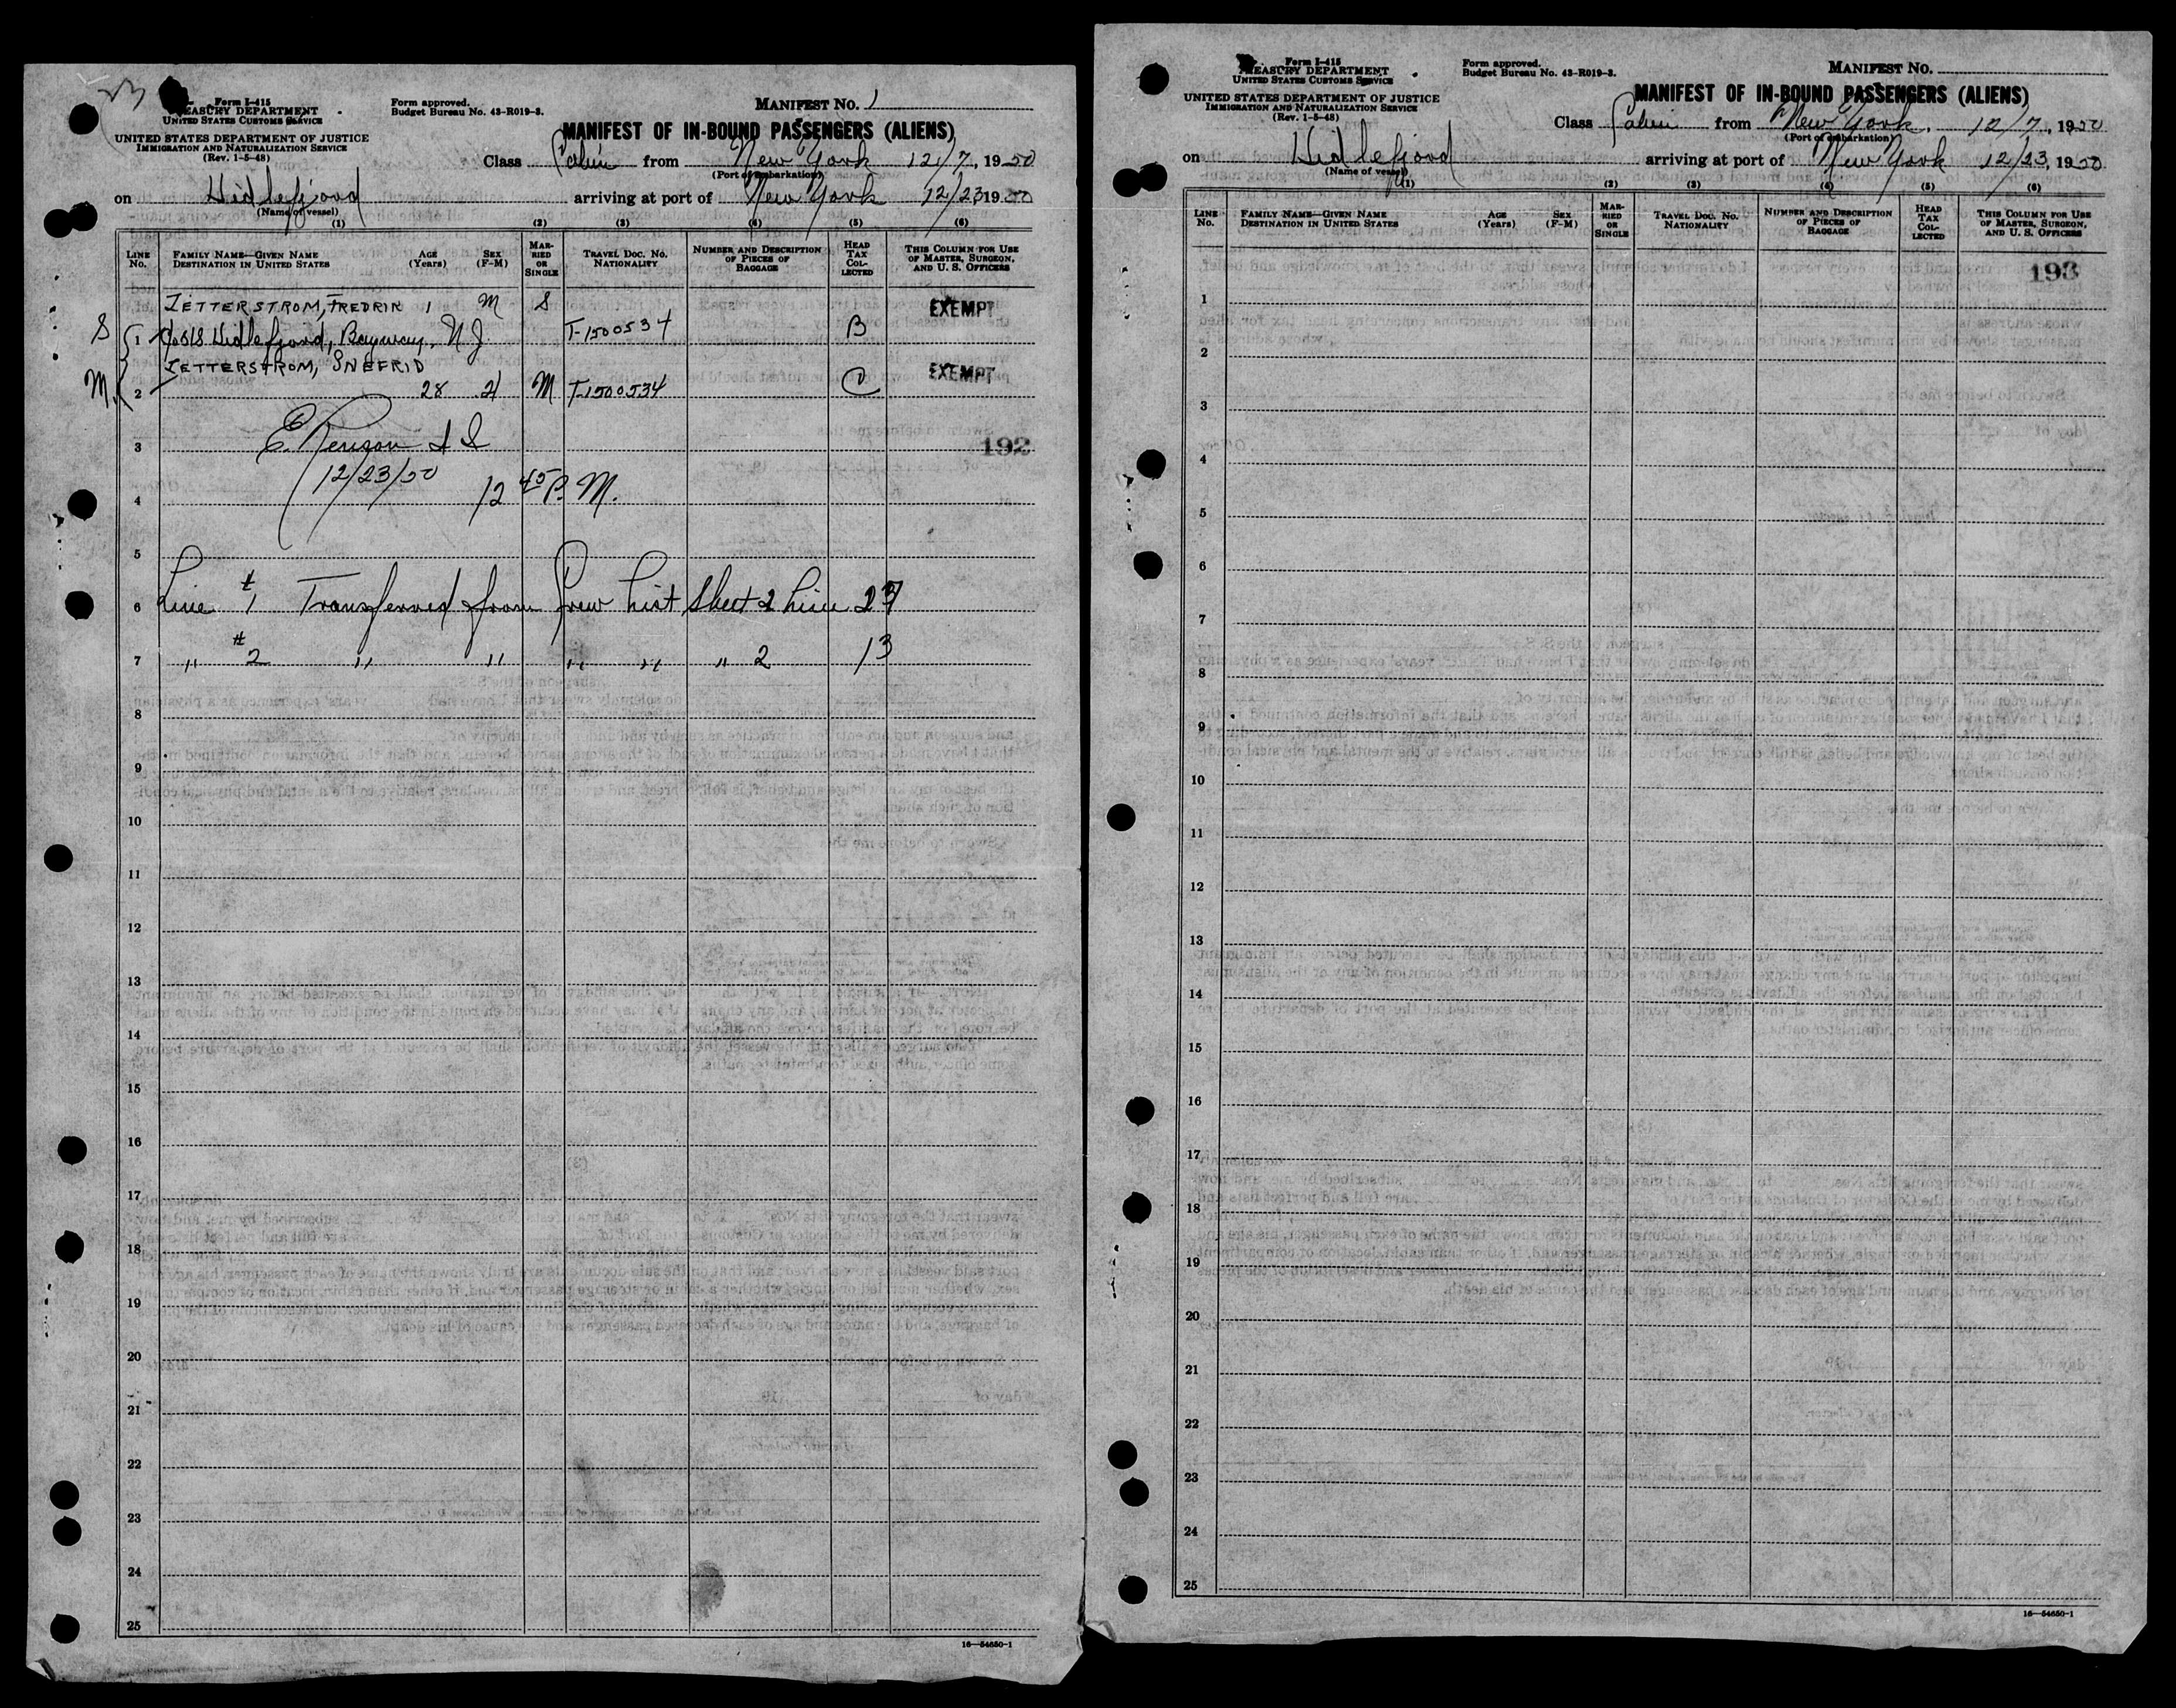 Form I-415
TREASURY DEPARTMENT
UNITED STATES CUSTOMS SERVICE
UNITED STATES DEPARTMENT OF JUSTICE
IMMIGRATION AND NATURALIZATION SERVICE
(Rev. 1-5-48)
Form approved.
Budget Bureau No. 43-R019-3.
MANIFEST No. 1
MANIFEST OF IN-BOUND PASSENGERS (ALIENS)
Class Cabin from New York 12/7, 1950
(Port of embarkation)
on Hidlefjord arriving at port of New York 12/23 1950
(Name of vessel)
(1) (2) (3) (4) (5) (6)
LINE No. FAMILY NAME—GIVEN NAME DESTINATION IN UNITED STATES AGE (Years) SEX (F-M) MARRIED OR SINGLE TRAVEL DOC. NO. NATIONALITY NUMBER AND DESCRIPTION OF PIECES OF BAGGAGE HEAD TAX COLLECTED THIS COLUMN FOR USE OF MASTER, SURGEON, AND U. S. OFFICERS
ZETTERSTROM, FREDRIK 1 M S EXEMPT
S 1 c/o S/S Hidlefjord, Bayway, N J T-1500534 B
ZETTERSTROM, SNEFRID EXEMPT
M 2 28 M T-1500534 C
3 192
12/23/50
4 12 45 P. M.
5
6 Line #1 Transferred from Crew List Sheet 2 Line 27
7 " #2 " " " " " 2 13
8
9
10
11
12
13
14
15
16
17
18
19
20
21
22
23
24
25
16—54650-1
Form I-415
TREASURY DEPARTMENT
UNITED STATES CUSTOMS SERVICE
UNITED STATES DEPARTMENT OF JUSTICE
IMMIGRATION AND NATURALIZATION SERVICE
(Rev. 1-5-48)
Form approved.
Budget Bureau No. 43-R019-3.
MANIFEST No.
MANIFEST OF IN-BOUND PASSENGERS (ALIENS)
Class Cabin from New York, 12/7, 1950
(Port of embarkation)
on Hidlefjord arriving at port of New York 12/23, 1950
(Name of vessel)
(1) (2) (3) (4) (5) (6)
LINE No. FAMILY NAME—GIVEN NAME DESTINATION IN UNITED STATES AGE (Years) SEX (F-M) MARRIED OR SINGLE TRAVEL DOC. NO. NATIONALITY NUMBER AND DESCRIPTION OF PIECES OF BAGGAGE HEAD TAX COLLECTED THIS COLUMN FOR USE OF MASTER, SURGEON, AND U. S. OFFICERS
193
1
2
3
4
5
6
7
8
9
10
11
12
13
14
15
16
17
18
19
20
21
22
23
24
25
16—54650-1